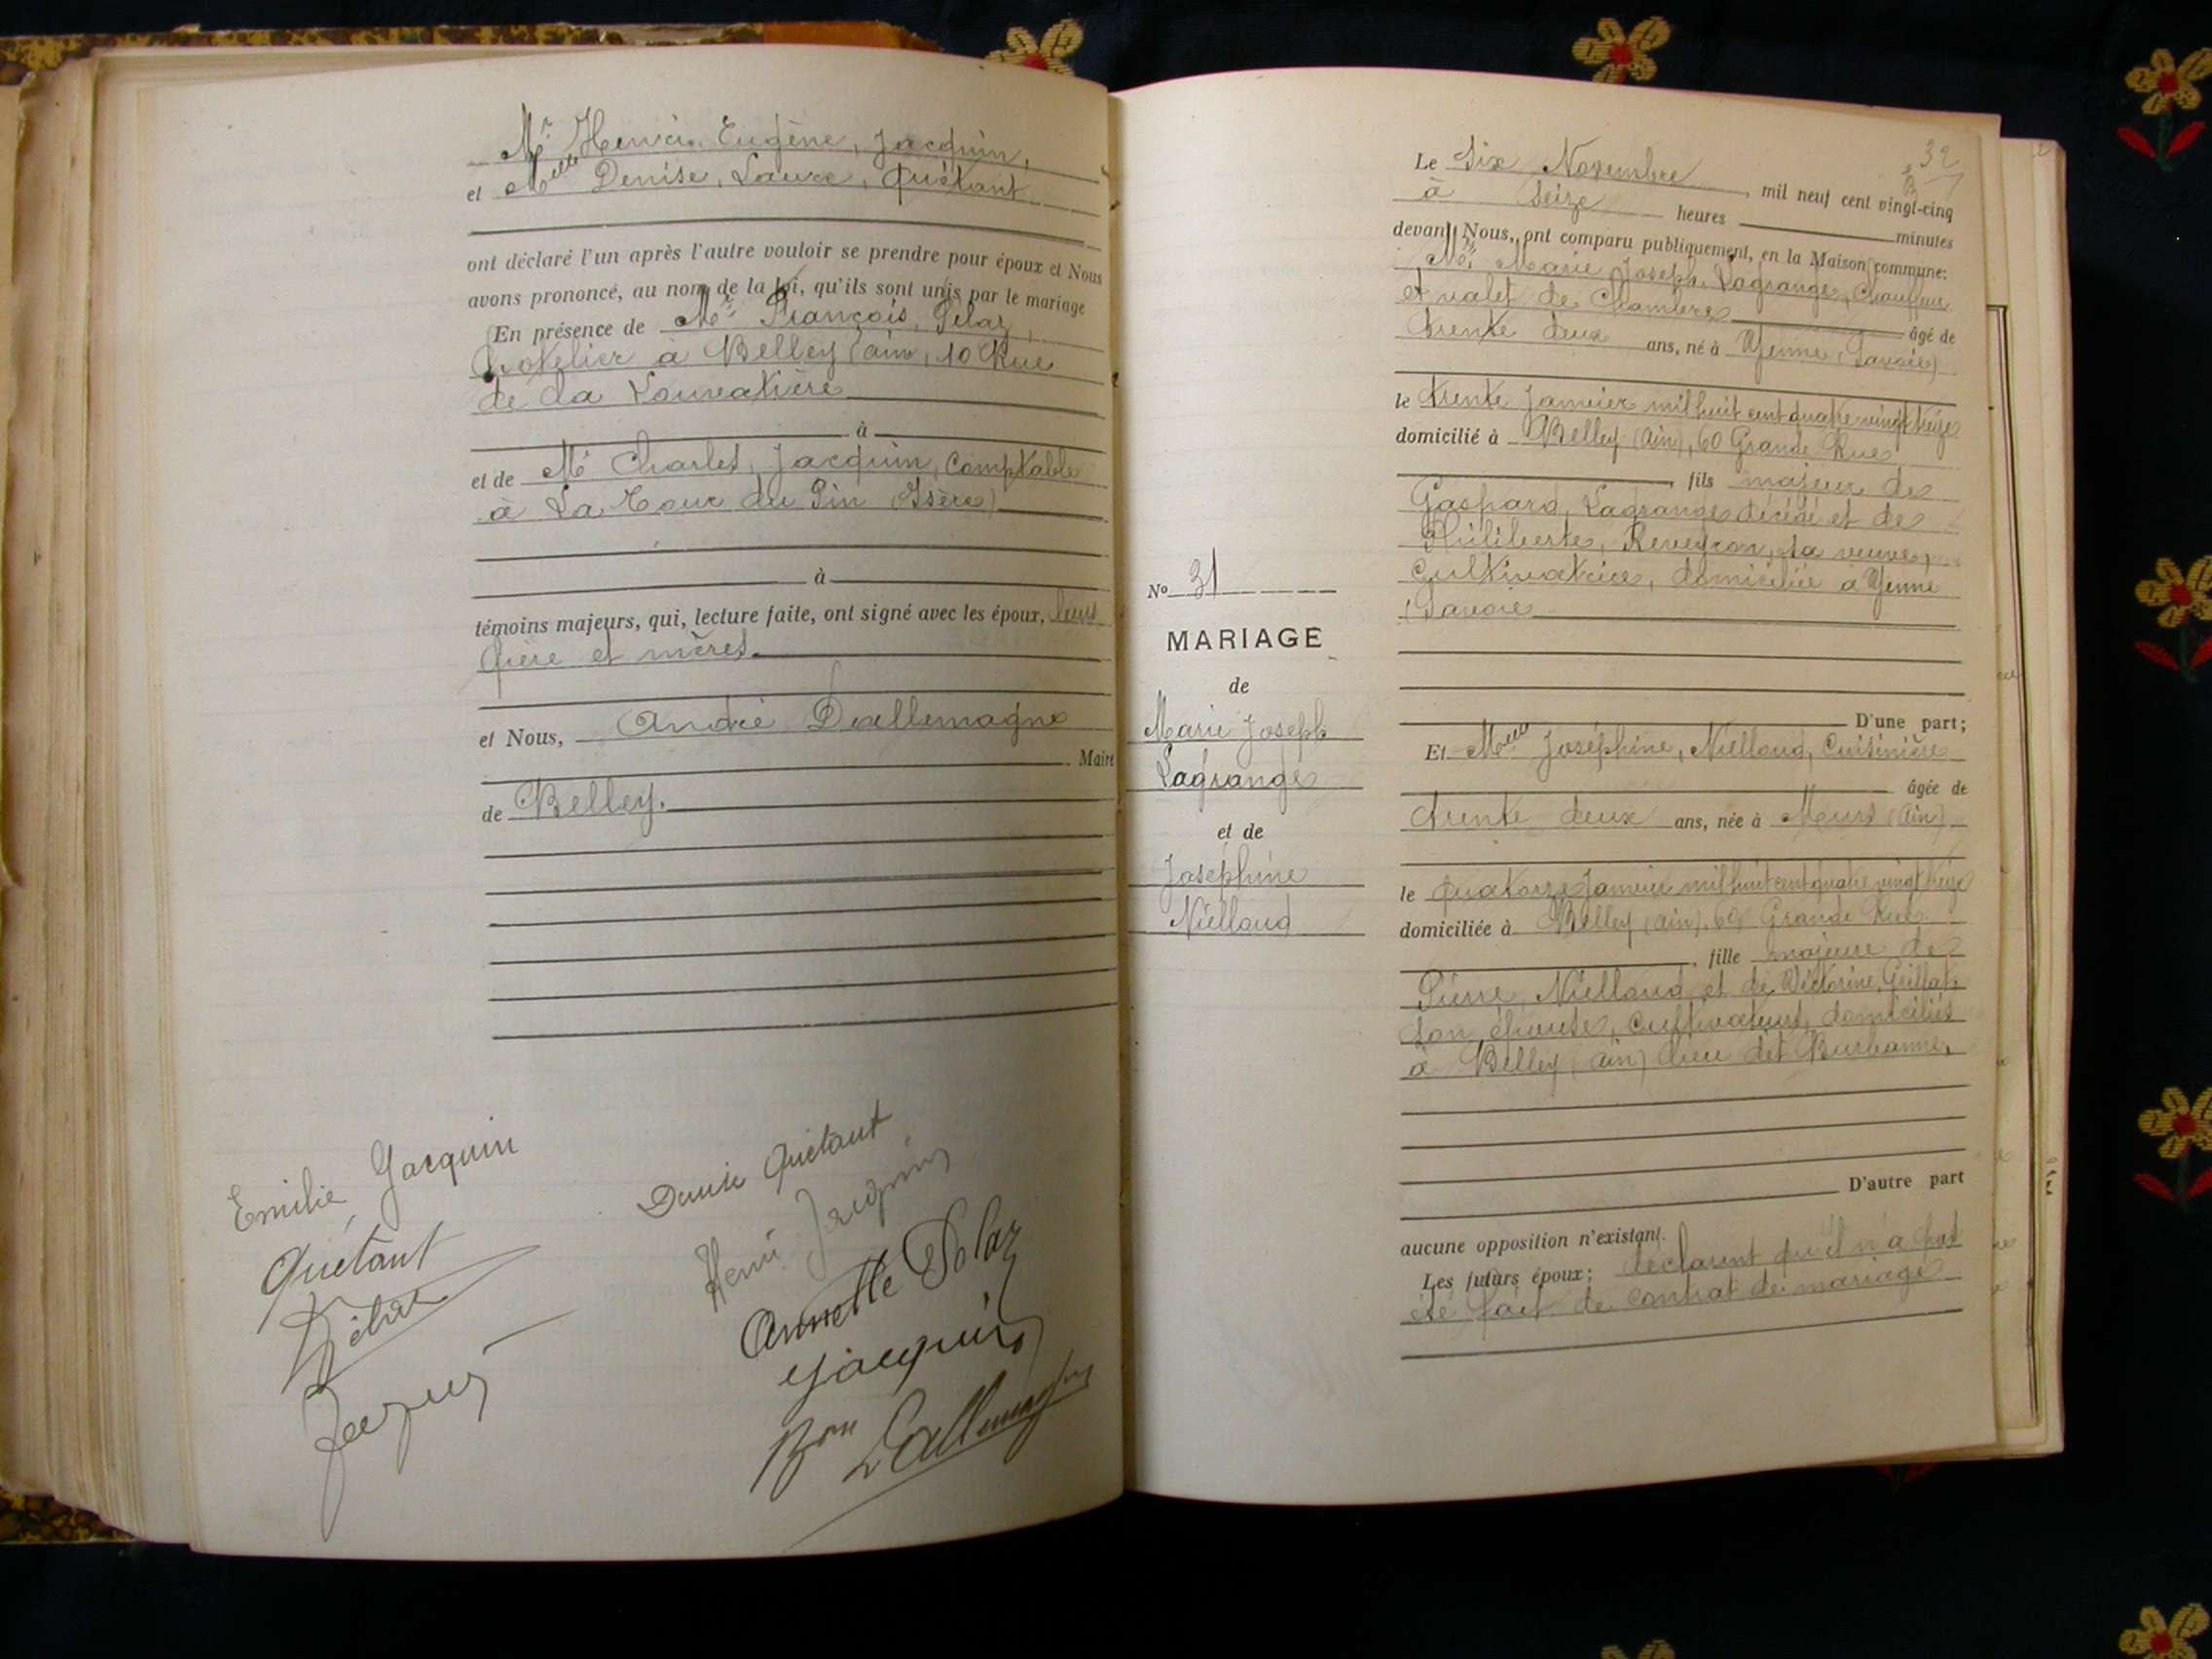 Mr Henri, Eugène, Jacquin,
et Melle Denise, Laure, Quétant
ont déclaré l'un après l'autre vouloir se prendre pour époux et Nous
avons prononcé, au nom de la loi, qu'ils sont unis par le mariage
En présence de Mr François, Pelaz,
hotelier à Belley (ain, 10 Rue
de la Louvatière
à
et de Mr Charles, Jacquin, Comptable
à La Tour du Pin (Isère)
à
témoins majeurs, qui, lecture faite, ont signé avec les époux, leurs
père et mères.
et Nous, André Dallemagne
Maire
de Belley.
Emilie Jacquin
Denise Quétant
Quétant
Henri Jacquin
Annette Pelaz
Jacquin
Bon Dallemagne
32
Le Six Novembre mil neuf cent vingt-cinq
à Seize heures minutes
devant Nous, ont comparu publiquement, en la Maison commune:
Mr Marie Joseph, Lagrange, Chauffeur
et valet de Chambre âgé de
trente deux ans, né à Yenne (Savoie)
le trente Janvier mil huit cent quatre vingt treize
domicilié à Belley (Ain), 60 Grande Rue
fils majeur de
Gaspard, Lagrange décédé et de
Philiberte, Reveyron, sa veuve,
Cultivatrice, domiciliée à Yenne
(Savoie
D'une part;
Et Melle Joséphine, Niélloud, Cuisinière
âgée de
trente deux ans, née à (Ain)
le quatorze Janvier mil huit cent quatre vingt treize
domiciliée à Belley (ain), 60 Grande Rue
fille majeure de
Pierre, Niélloud et de Victorine,
son épouse, Cultivateurs, domiciliés
à Belley (ain) lieu dit Burbanne,
D'autre part
aucune opposition n'existant.
Les futurs époux; déclarent qu'il n'a pas
été fait de contrat de mariage
No 31
MARIAGE
de
Marie Joseph
Lagrange
et de
Joséphine
Niélloud